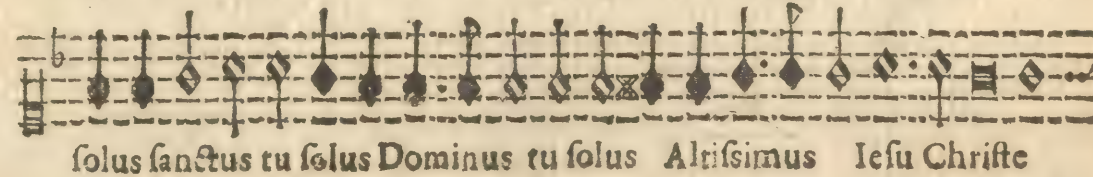 ſolus ſanctus tu ſolus Dominus tu ſolus Altiſsimus Ieſu Chriſte